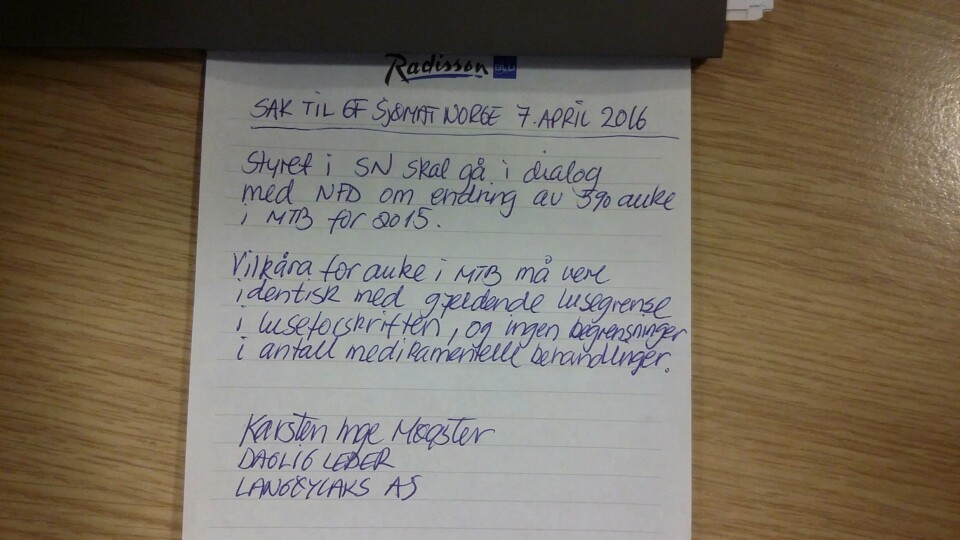 Radisson BLU
SAK TIL GF SJØMAT NORGE 7. APRIL 2016
Styret i SN skal gå i dialog
med NFD om endring av 5% auke
i MTB for 2015.
Vilkåra for auke i MTB må vere
identisk med gjeldende lusegrense
i luseforskriften, og ingen begrensninger
i antall medikamentelle behandlinger.
Karsten Inge Møgster
DAGLIG LEDER
LANGØYLAKS AS